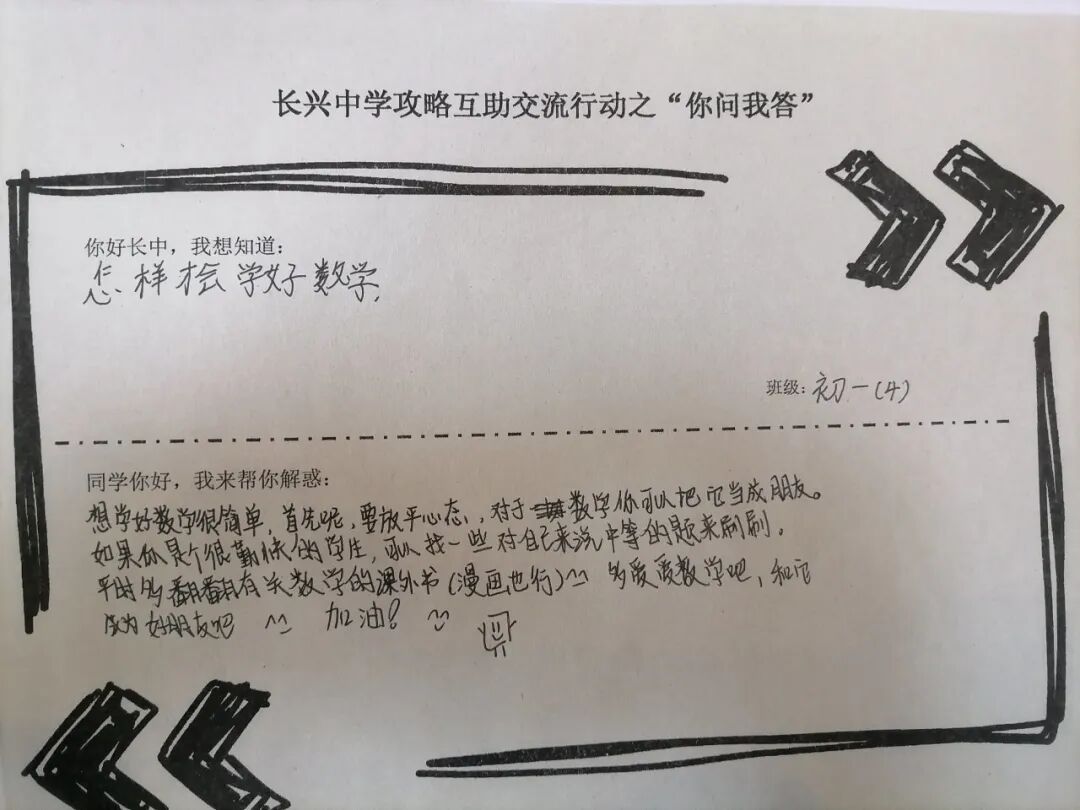 长兴中学攻略互助交流行动之“你问我答”
你好长中，我想知道：
怎样才会学好数学
班级：初一（4）
同学你好，我来帮你解惑：
想学好数学很简单，首先呢，要放平心态，对于数学你可以把它当成朋友。
如果你是个很勤快的学生，可以找一些对自己来说中等的题来刷刷。
平时多翻翻有关数学的课外书（漫画也行） 多爱爱数学吧，和它
成为好朋友吧 加油！